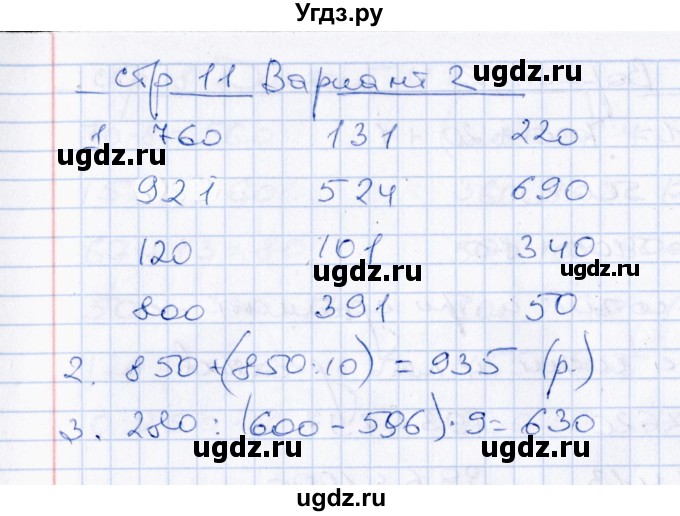 Угдз.ру
стр 11 Вариант 2
ugdz.ru
1 760 131 220
ugdz.ru
921 524 690
120 101 340
ugdz.ru ugdz.ru
800 391 50
2. 850+(850:10) = 935 (р.)
ugdz.ru ugdz.ru
3. 280 : (600 - 596) · 9 = 630
ugdz.ru
ugdz.ru